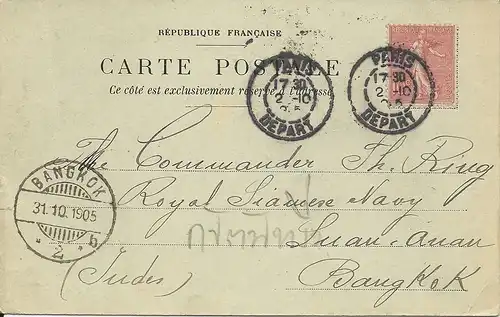 RÉPUBLIQUE FRANÇAISE
CARTE POSTALE
Ce côté est exclusivement réservé à l'adresse
PARIS
17 30
2 -10
DÉPART
PARIS
17 30
2 -10
DÉPART
The Commander Th. Ring
Royal Siamese Navy
Suan-Anan
(Indes) Bangkok
BANGKOK
31.10.1905
* 2 * b